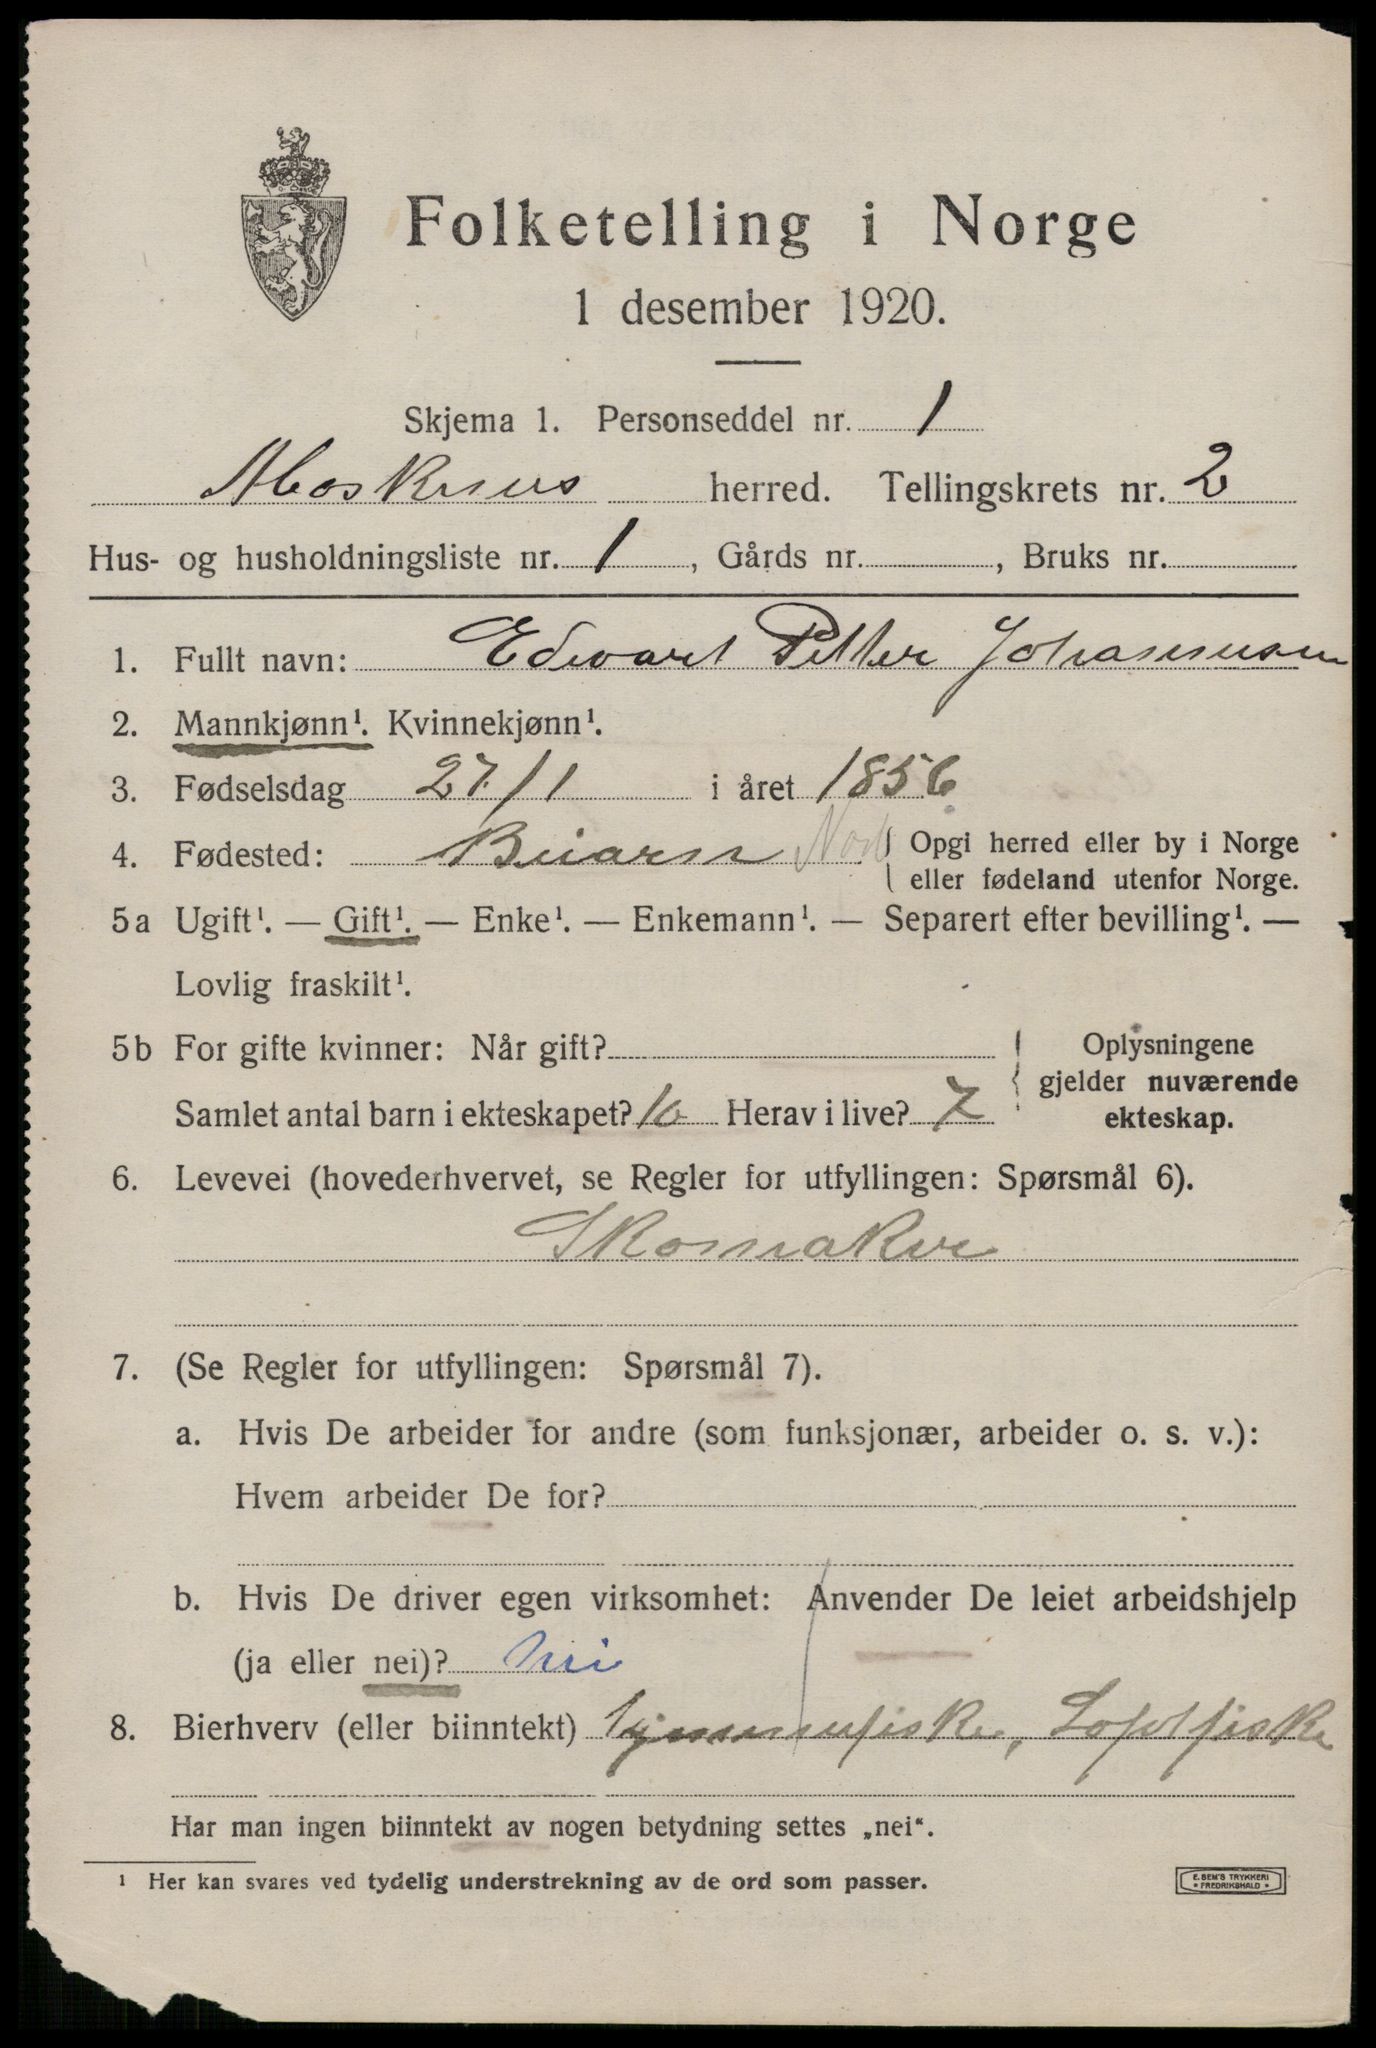 Folketelling i Norge
1 desember 1920.
Skjema 1. Personseddel nr. 1
Moskenes herred. Tellingskrets nr. 2
Hus- og husholdningsliste nr. 1, Gårds nr. , Bruks nr.
1. Fullt navn: Edvart Petter Johannesen
2. Mannkjønn¹. Kvinnekjønn¹.
3. Fødselsdag 27/1 i året 1856
4. Fødested: Beiarn Nord { Opgi herred eller by i Norge
eller fødeland utenfor Norge.
5a Ugift¹. — Gift¹. — Enke¹. — Enkemann¹. — Separert efter bevilling¹. —
Lovlig fraskilt¹.
5b For gifte kvinner: Når gift?
Samlet antal barn i ekteskapet? 10 Herav i live? 7
Oplysningene
gjelder nuværende
ekteskap.
6. Levevei (hovederhvervet, se Regler for utfyllingen: Spørsmål 6).
Skomaker
7. (Se Regler for utfyllingen: Spørsmål 7).
a. Hvis De arbeider for andre (som funksjonær, arbeider o. s. v.):
Hvem arbeider De for?
b. Hvis De driver egen virksomhet: Anvender De leiet arbeidshjelp
(ja eller nei)? nei
8. Bierhverv (eller biinntekt) Hjemmefiske, Lofotfiske
Har man ingen biinntekt av nogen betydning settes „nei“.
¹ Her kan svares ved tydelig understrekning av de ord som passer.
E. SEM'S TRYKKERI
* FREDRIKSHALD *